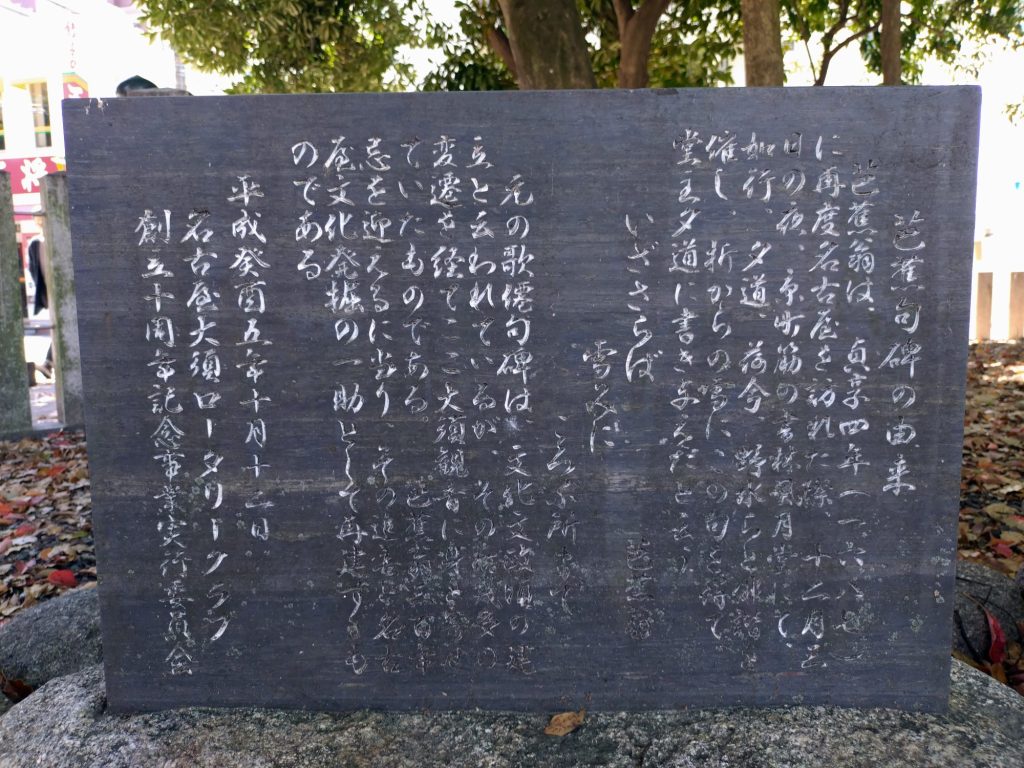 芭蕉句碑の由来
芭蕉翁は、貞享四年(一六八七
に再度名古屋を訪れた際、十二月三
日の夜、京町筋の書林風月堂にて、
如行、夕道、荷兮、野水らと俳諧を
催し、折からの雪に、この句を作って
堂主夕道に書き与えたと云う
いざさらば
雪みに
ころぶ所まで
芭蕉翁
元の歌僊句碑は、文化文政頃の建
立と云われているが、その後幾多の
変遷を経てここ大須観音に
ていたものである。芭蕉三百年
忌を迎えるに当り、その追善と名古
屋文化発掘の一助として再建するも
のである
平成癸酉五年十月十二日
名古屋大須ロータリークラブ
創立十周年記念事業実行委員会